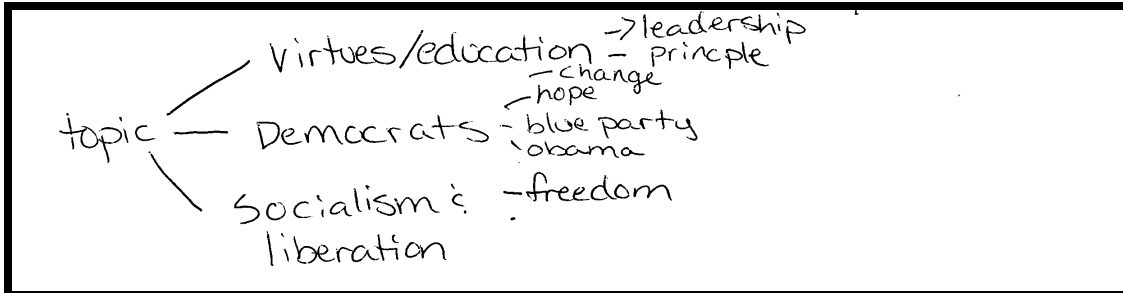 virtues/education
->leadership
- princple
topic
Democrats
-change
-hope
-blue party
-obama
Socialism &
liberation
-freedom